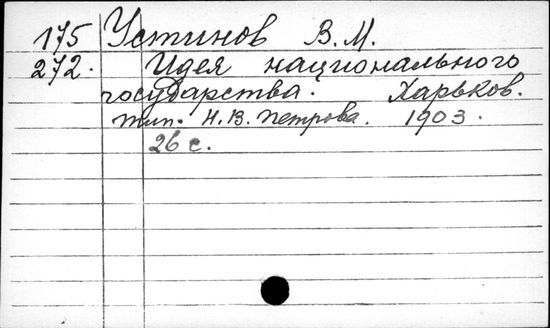 175 Устинов В.М.
272. Идея национального
государства. Харьков.
тип. Н.В. Петрова. 1903.
26 с.